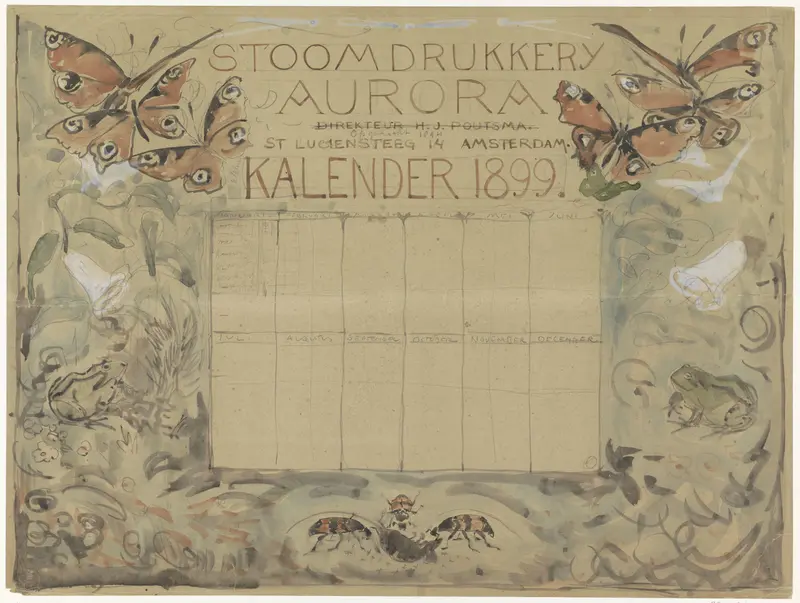 STOOMDRUKKERY
AURORA
DIREKTEUR H. J. POUTSMA.
ST LUCIENSTEEG 14 AMSTERDAM.
KALENDER 1899.
MEI JUNI
JULI AUGUSTUS SEPTEMBER OCTOBER NOVEMBER DECEMBER